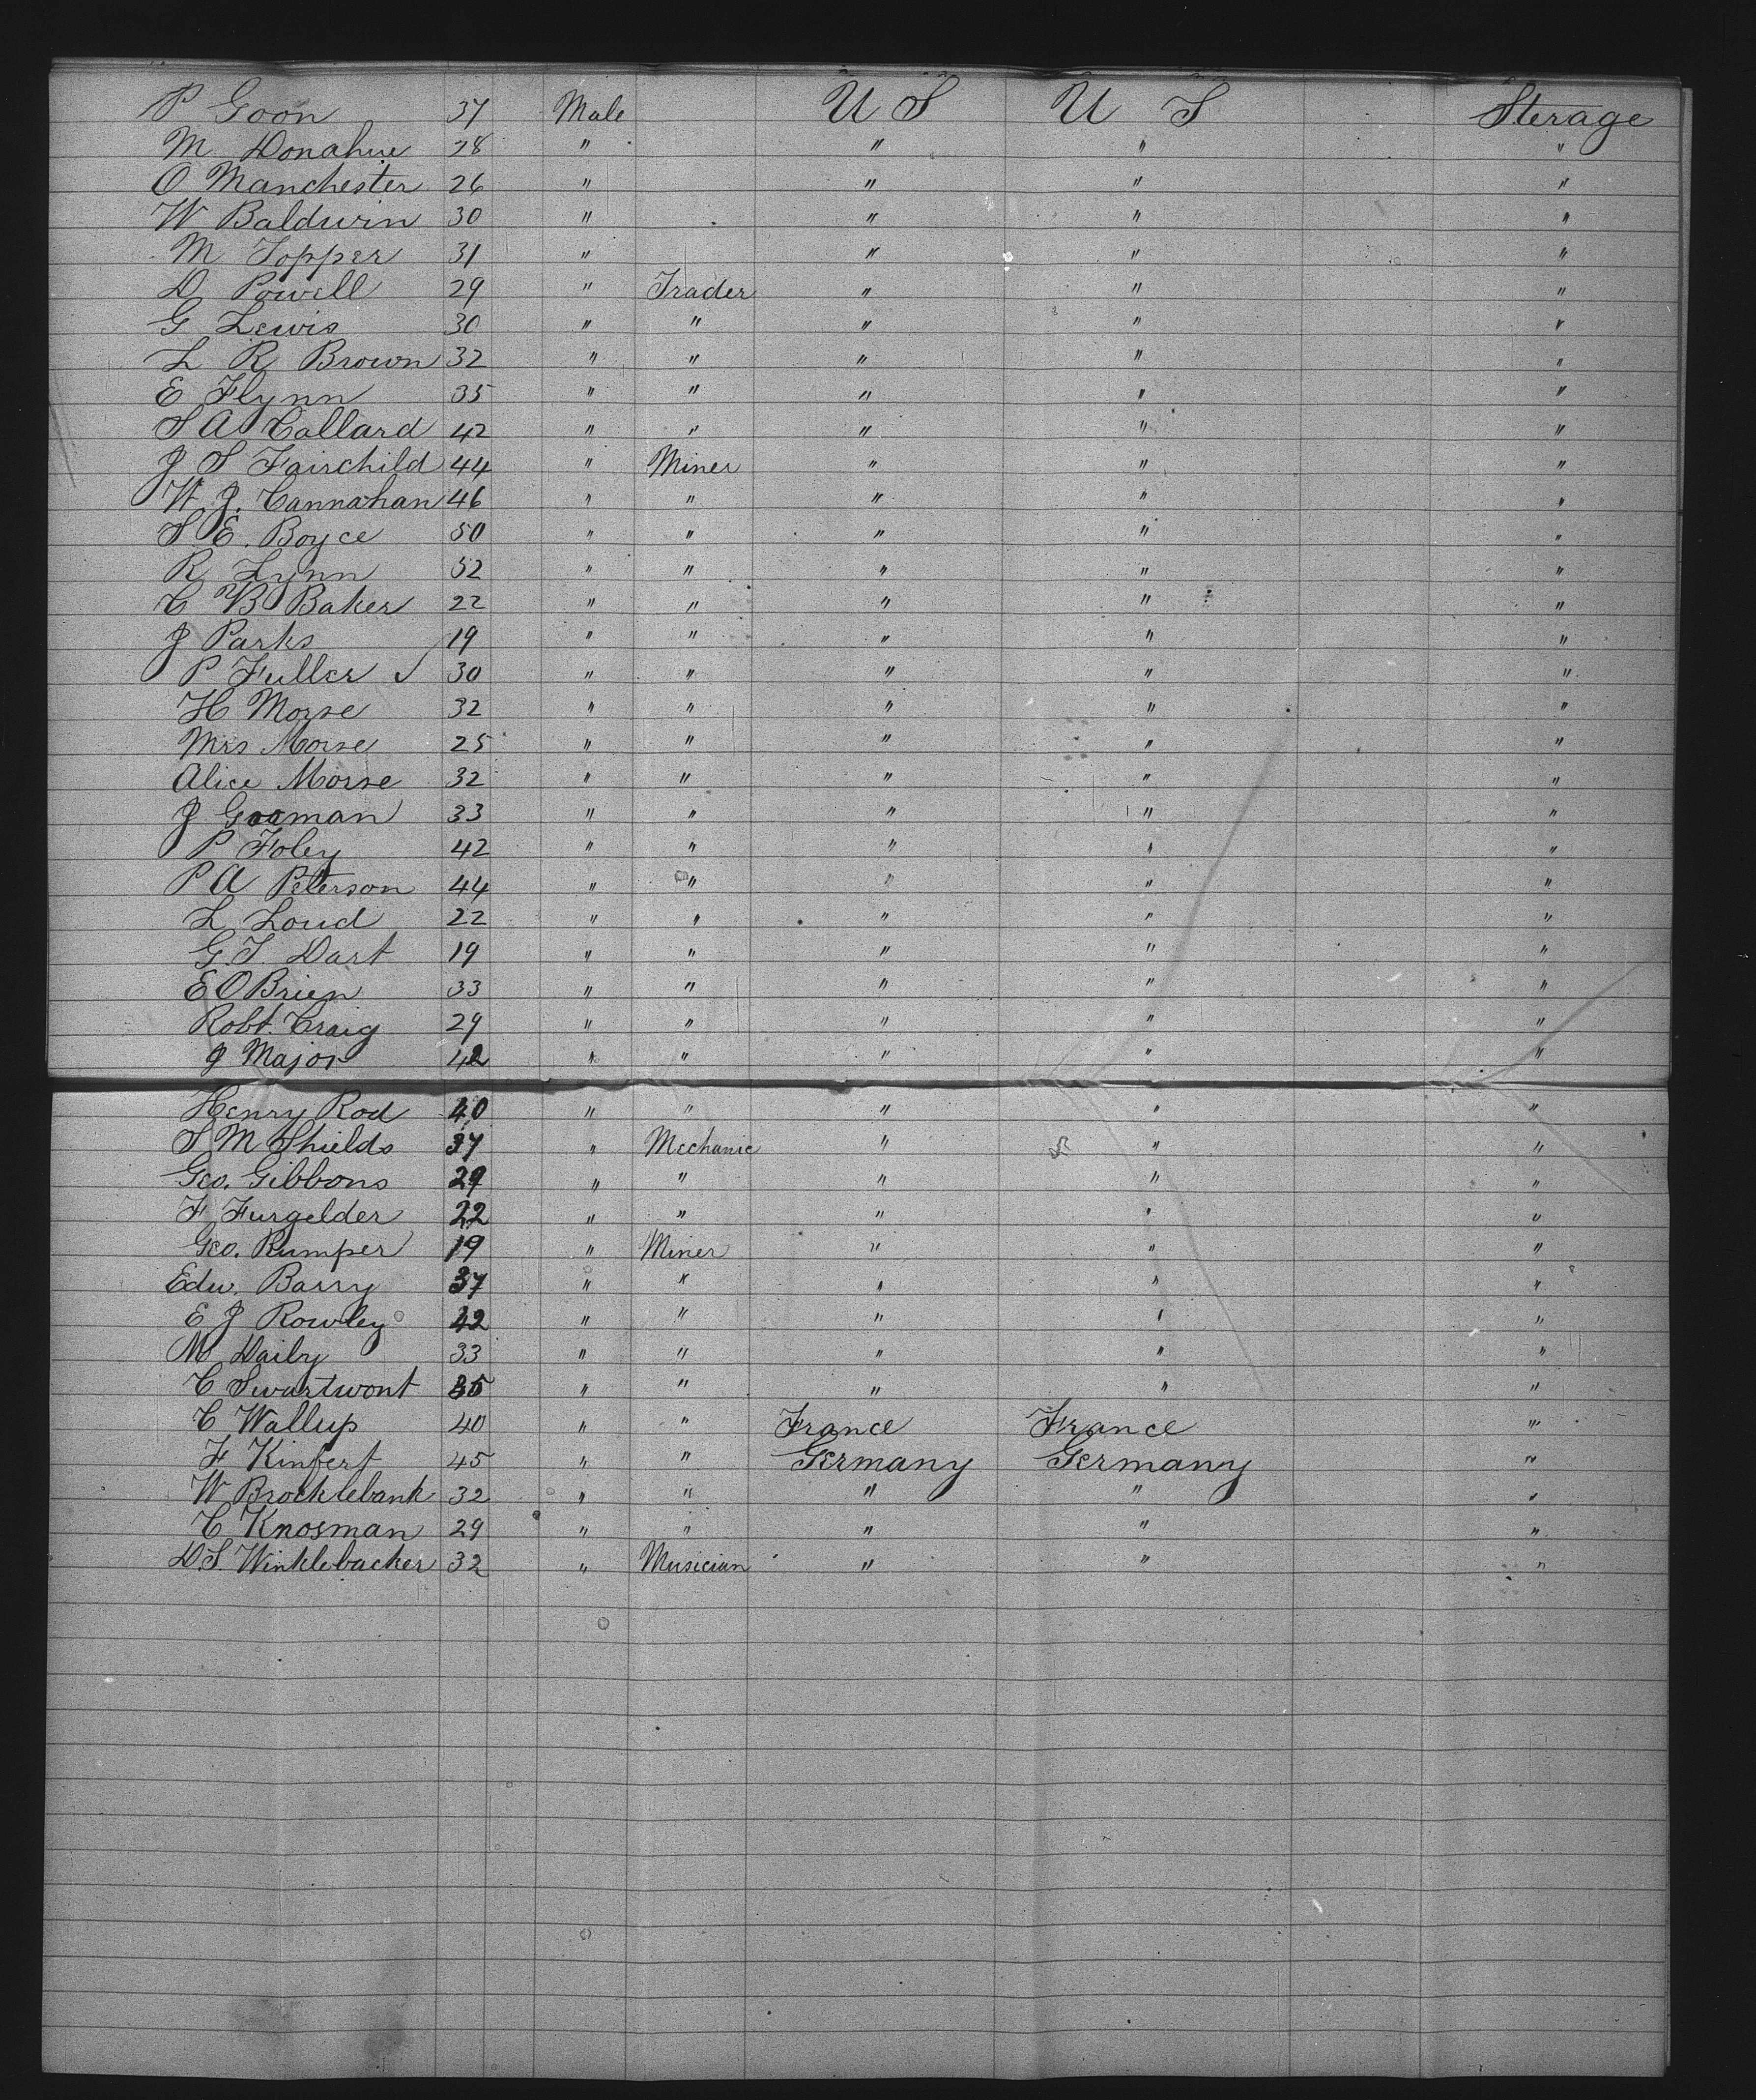 P Goon 37 Male U S U S Sterage
M Donahue 28 " " " "
O Manchester 26 " " " "
W Baldwin 30 " " " "
M Topper 31 " " " "
D Powell 29 " Trader " " "
G Lewis 30 " " " " "
L R Brown 32 " " " " "
E Flynn 35 " " " " "
S A Collard 42 " " " " "
J S Fairchild 44 " Miner " " "
W J. Cannahan 46 " " " " "
S E. Boyce 50 " " " " "
R Lynn 52 " " " " "
C B Baker 22 " " " " "
J Parks 19 " " " " "
P Fuller ✓ 30 " " " " "
H Morse 32 " " " " "
Mrs Morse 25 " " " " "
Alice Morse 32 " " " " "
J Gooman 33 " " " " "
P Foley 42 " " " " "
P A Peterson 44 " " " " "
L Loud 22 " " " " "
G. T. Dart 19 " " " " "
E OBrien 33 " " " " "
Robt. Craig 29 " " " " "
J Major 42 " " " " "
Henry Rod 40 " " " " "
S M Shields 37 " Mechanic " " "
Geo. Gibbons 29 " " " " "
F Furgelder 22 " " " " "
Geo. Rumper 19 " Miner " " "
Edw. Barry 37 " " " " "
E J Rowley 42 " " " " "
M Daily 33 " " " " "
C Swartwont 35 " " " " "
C Wallup 40 " " France France "
F Kinfert 45 " " Germany Germany "
W Brocklebank 32 " " " " "
C Knosman 29 " " " " "
D.S. Winklebacker 32 " Musician " " "